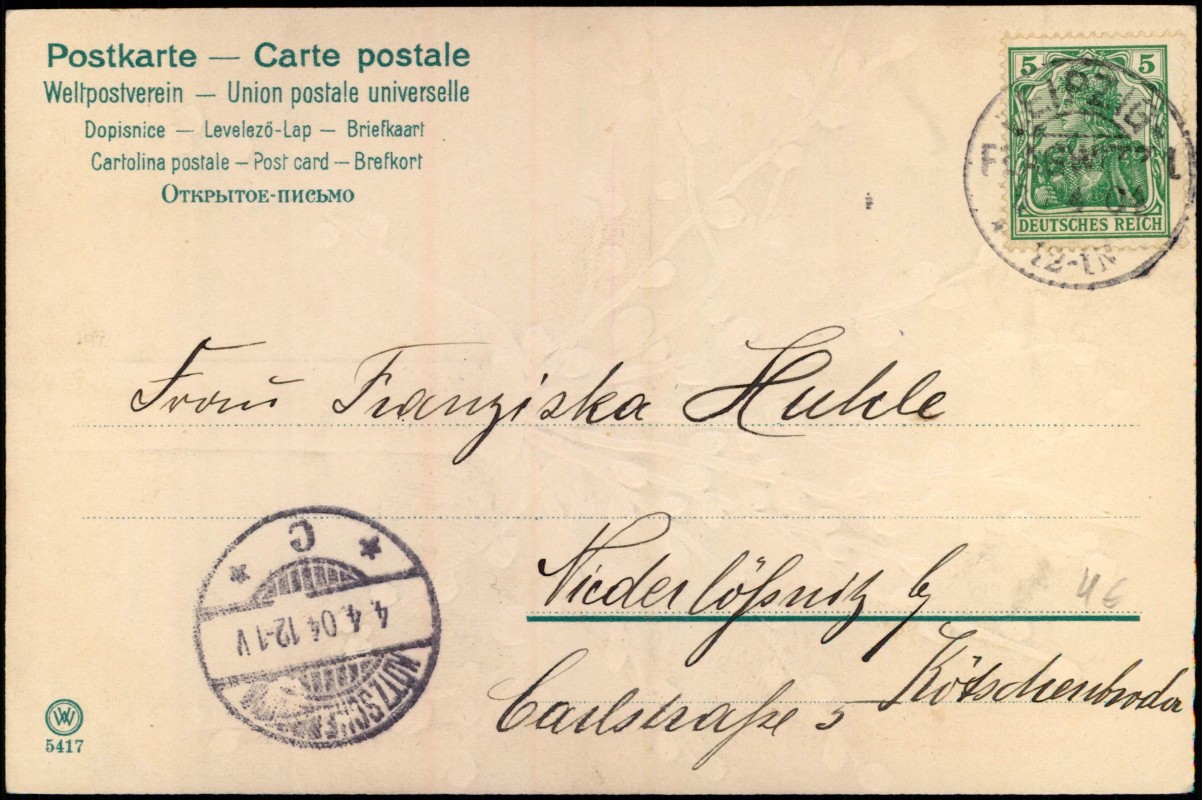 Postkarte — Carte postale
Weltpostverein — Union postale universelle
Dopisnice — Levelező-Lap — Briefkaart
Cartolina postale — Post card — Brefkort
Открытое-письмо
5 5
DEUTSCHES REICH
LEIPZIG
12-1N
Frau Franziska Huhle
Niederlößnitz b/
Kötschenbroda
Carlstraße 5
C
4.4.04 12-1V
W
5417